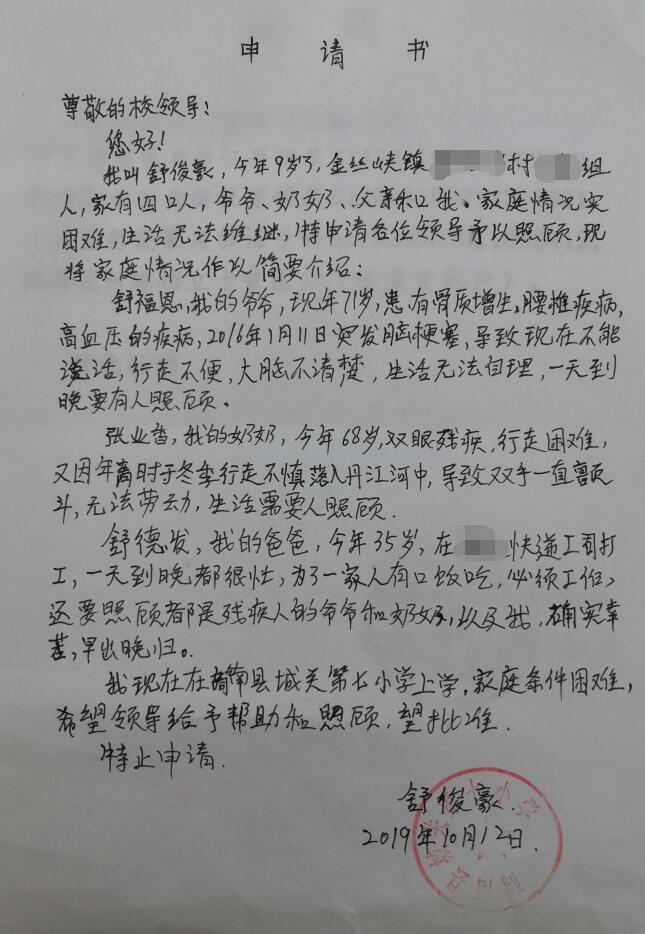 申请书
尊敬的校领导!
您好!
我叫舒俊豪,今年9岁了,金丝峡镇 村 组
人,家有四口人,爷爷、奶奶、父亲和我。家庭情况实
困难,生活无法维继,特申请各位领导予以照顾,现
将家庭情况作以简要介绍:
舒福恩,我的爷爷,现年71岁,患有骨质增生,腰椎疾病,
高血压的疾病,2016年1月11日突发脑梗塞,导致现在不能
说话,行走不便,大脑不清楚,生活无法自理,一天到
晚要有人照顾。
张业香,我的奶奶,今年68岁,双眼残疾,行走困难,
又因年离时于冬季行走不慎落入丹江河中,导致双手一直颤
斗,无法劳动,生活需要人照顾.
舒德发,我的爸爸,今年35岁,在 快递工司打
工,一天到晚都很忙,为了一家人有口饭吃,必须工作,
还要照顾都是残疾人的爷爷和奶奶,以及我,确实辛
苦,早出晚归。
我现在在商南县城关第七小学上学,家庭条件困难,
希望领导给予帮助和照顾,望批准.
特止申请.
舒俊豪.
2019年10月12日.